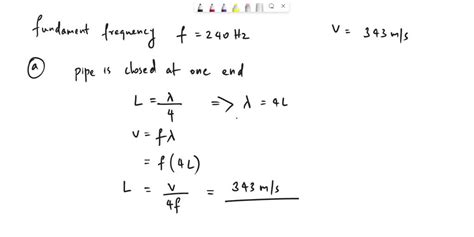 fundament frequency f = 240 Hz V = 343 m/s
(a) pipe is closed at one end
L = λ/4 => λ = 4L
V = fλ
= f(4L)
L = V/4f = 343 m/s